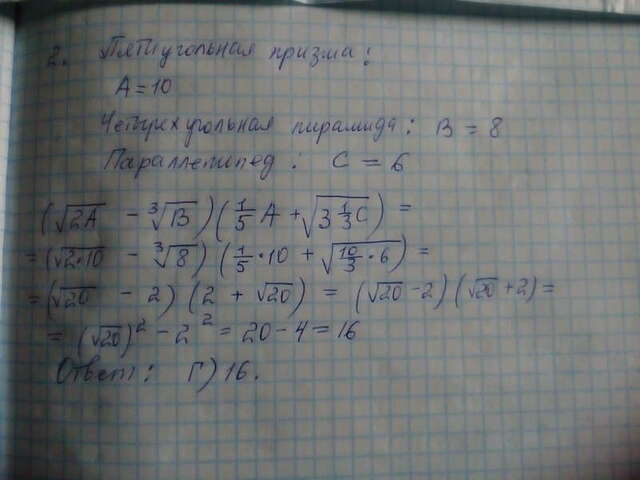 2. Пятиугольная призма:
A = 10
Четырехугольная пирамида: B = 8
Параллепипед: C = 6
(√2A - ∛B)(1/5 A + √(3 1/3 C)) =
= (√2·10 - ∛8)(1/5 · 10 + √(10/3 · 6)) =
= (√20 - 2)(2 + √20) = (√20 - 2)(√20 + 2) =
= (√20)² - 2² = 20 - 4 = 16
Ответ: Г) 16.